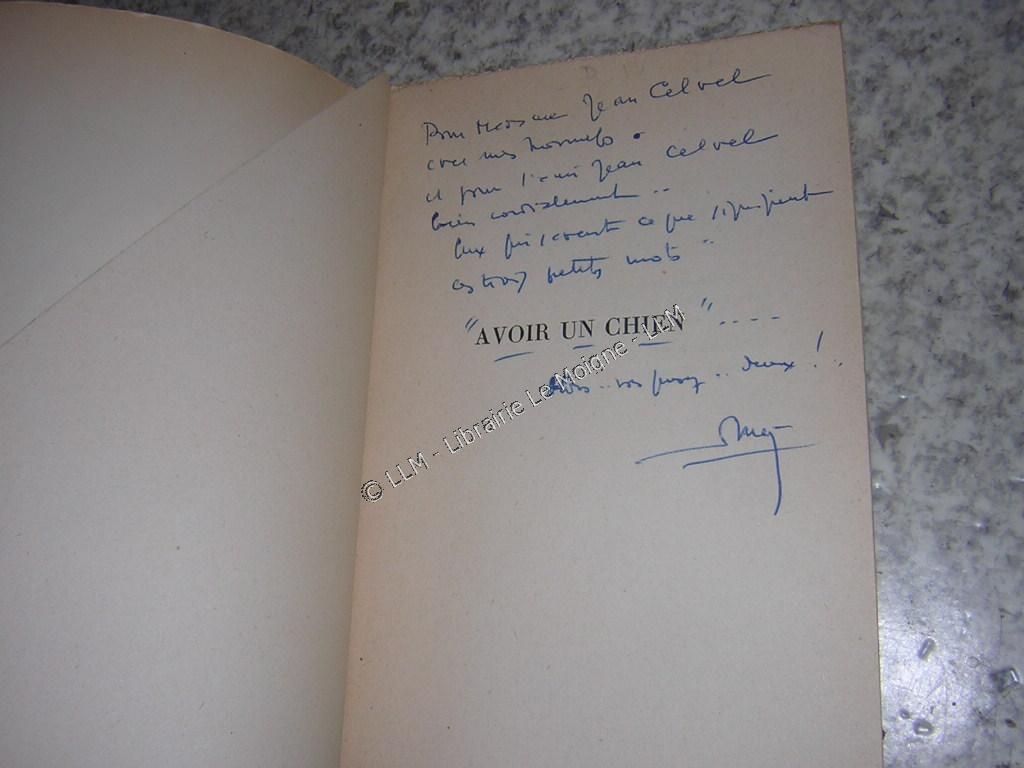 Pour Madame Jean Calvel
avec mes hommages
et pour l'ami Jean Calvel
bien cordialement ..
Eux qui savent ce que signifient
ces trois petits mots
"AVOIR UN CHIEN" ----
.. vos pensez .. deux ! ..
© LLM - Librairie Le Moigne - LLM